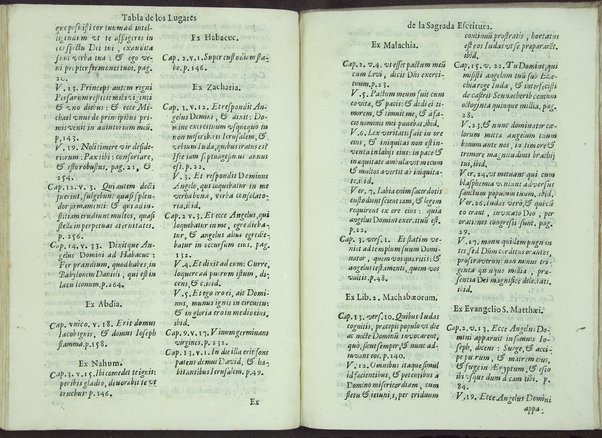 Tabla de los Lugares
que posuisti cor tuum ad intel-
ligendum vt te affligeres in
conspectu Dei tui, exaudita
sunt verba tua: & ego ve-
ni propter sermones tuos, pag.
20.
V. 13. Princeps autem regni
Persarum restitit mihi vigínti
& vno diebus: & ecce Mi-
chael vnus de principibus pri-
mis venit in adiutorium meũ.
p. 143.
V. 19. Noli timere vir deside-
riorum: Pax tibi: confortare,
& esto robustus, pag. 21, &
254.
Cap. 12. v. 3. Qui autem docti
fuerint, fulgebunt quasi splen-
dor firmamenti: & qui ad iu-
stitiam erudiunt multos, quasi
stellæ in perpetuas æternitates.
p. 256.
Cap. 14. v. 33. Dixitque An-
gelus Domini ad Habacuc:
Fer prandium, quod habes, in
Babylonem Danieli, qui est in
Lacu leonum, p. 264.
Ex Abdia.
Cap. vnico. v. 18. Erit domus
Iacob ignis, & domus Ioseph
flamma. p. 158.
Ex Nahum.
Cap. 3. v. 15. Ibi comedet te ignis:
peribis gladio, deuorabit te vt
bruchus: p. 146.
Ex Habacuc.
Cap. 2. v. 1. Super custodiam sta-
bo. p. 146.
Ex Zacharia.
Cap. 1. v. 12. Et respondit An-
gelus Domini, & dixit: Do-
mine exercituum vsquequo tu
non misereberis Ierusalem, &
vrbium Iuda, quibus iratus es?
Iste iam septuagesimus annus
est. p. 22.
V. 13. Et respondit Dominus
Angelo, qui loquebatur in me
verba bona, verba consolato-
ria, ibid.
Cap. 2. v. 3. Et ecce Angelus, qui
loquebatur in me, egrediebatur,
& angelus alius egredie-
batur in occursum eius. pag.
132.
V. 4. Et dixit ad eum: Curre,
loquere ad puerum istum, di-
cens, & c. ibid.
V. 5. Et ego ero ei, ait Domi-
nus, murus ignis in circuitus
& in gloria ero in medio eius,
ibid.
Cap. 9. v. 17. Vinum germinans
virgines, p. 232.
Cap. 13. v. 1. In die illa erit fons
patens domui Dauid, & ha-
bitantibus Ierusalem. p. 49.
Ex
de la Sagrada Escritura.
Ex Malachia.
Cap. 2. v. 4. vt esset pactum meũ
cum Leui, dicit Dñs exerci-
tuum, p. 23.
V. 5. Pactum meum fuit cum
eo vitæ, & pacis: & dedi ei ti-
morem, & timuit me, & à fa-
cie nominis mei pauebat, ibid.
V. 6. Lex veritatis fuit in ore
eius, & iniquitas non est in-
uenta in labijs eius: in pace &
in æquitate ambulauit mecum
& multos auertit ab iniquita-
te, ibid.
Ver. 7. Labia enim sacerdotis
custodiunt scientiam, & legem
requirent ex ore eius: quia
angelus Domini exercituũ est.
p. 22.
Cap. 3. vers. 1. Et statim ve-
niet ad templum suum Domi-
nator, quem vos quæritis: &
angelus testamenti, quem vos
vultis. p. 48.
Ex Lib. 2. Machabæorum.
Cap. 13. vers. 10. Quibus Iudas
cognitis, præcepit populo vt die
ac nocte Dominũ inuocarent,
quò, sicut semper, & nunc ad-
iuuaret eos. p. 140.
V. 12. Omnibus itaque simul
id facientibus, & petentibus à
Domino misericordiam, cum
fletu & ieiunijs, per triduum
continuũ prostratis, hortatus
est eos Iudas vt se præpararẽt.
ibid.
Cap. 15. v. 22. Tu Domine, qui
misisti angelum tuũ sub Eze-
chia rege Iuda, & interfecisti
de castris Sennacherib centum
octoginta quinque milia, pag.
28.
V. 23. & nunc dominator cœ-
lorum mitte angelum tuum
bonum ante nos, in timore &
tremore magnitudinis brachij
tui, ibid.
Ver. 24. vt metuant qui cum
blasphemia veniunt aduersus
sanctum populum tuum, ibid.
Ver. 26. Iudas verò, & qui cũ
eo erant, inuocato Deo, per
orationes congressi sunt, pag.
29.
V. 27. manu quidem pugnan-
tes, sed Dñm cordibus orantes,
prostrauerunt non minus tri-
ginta quinque milia, præsen-
tia Dei magnifice delectati,
ibid.
Ex Euangelio S. Matthæi.
Cap. 2. v. 13. Ecce Angelus Do-
mini apparuit in somnis Io-
seph, dicens: Surge, & acci-
pe puerum, & matrem eius,
& fuge in Ægyptum, & esto
ibi vsque dum dicam tibi. p.
84.
V. 19. Ecce Angelus Domini
appa-